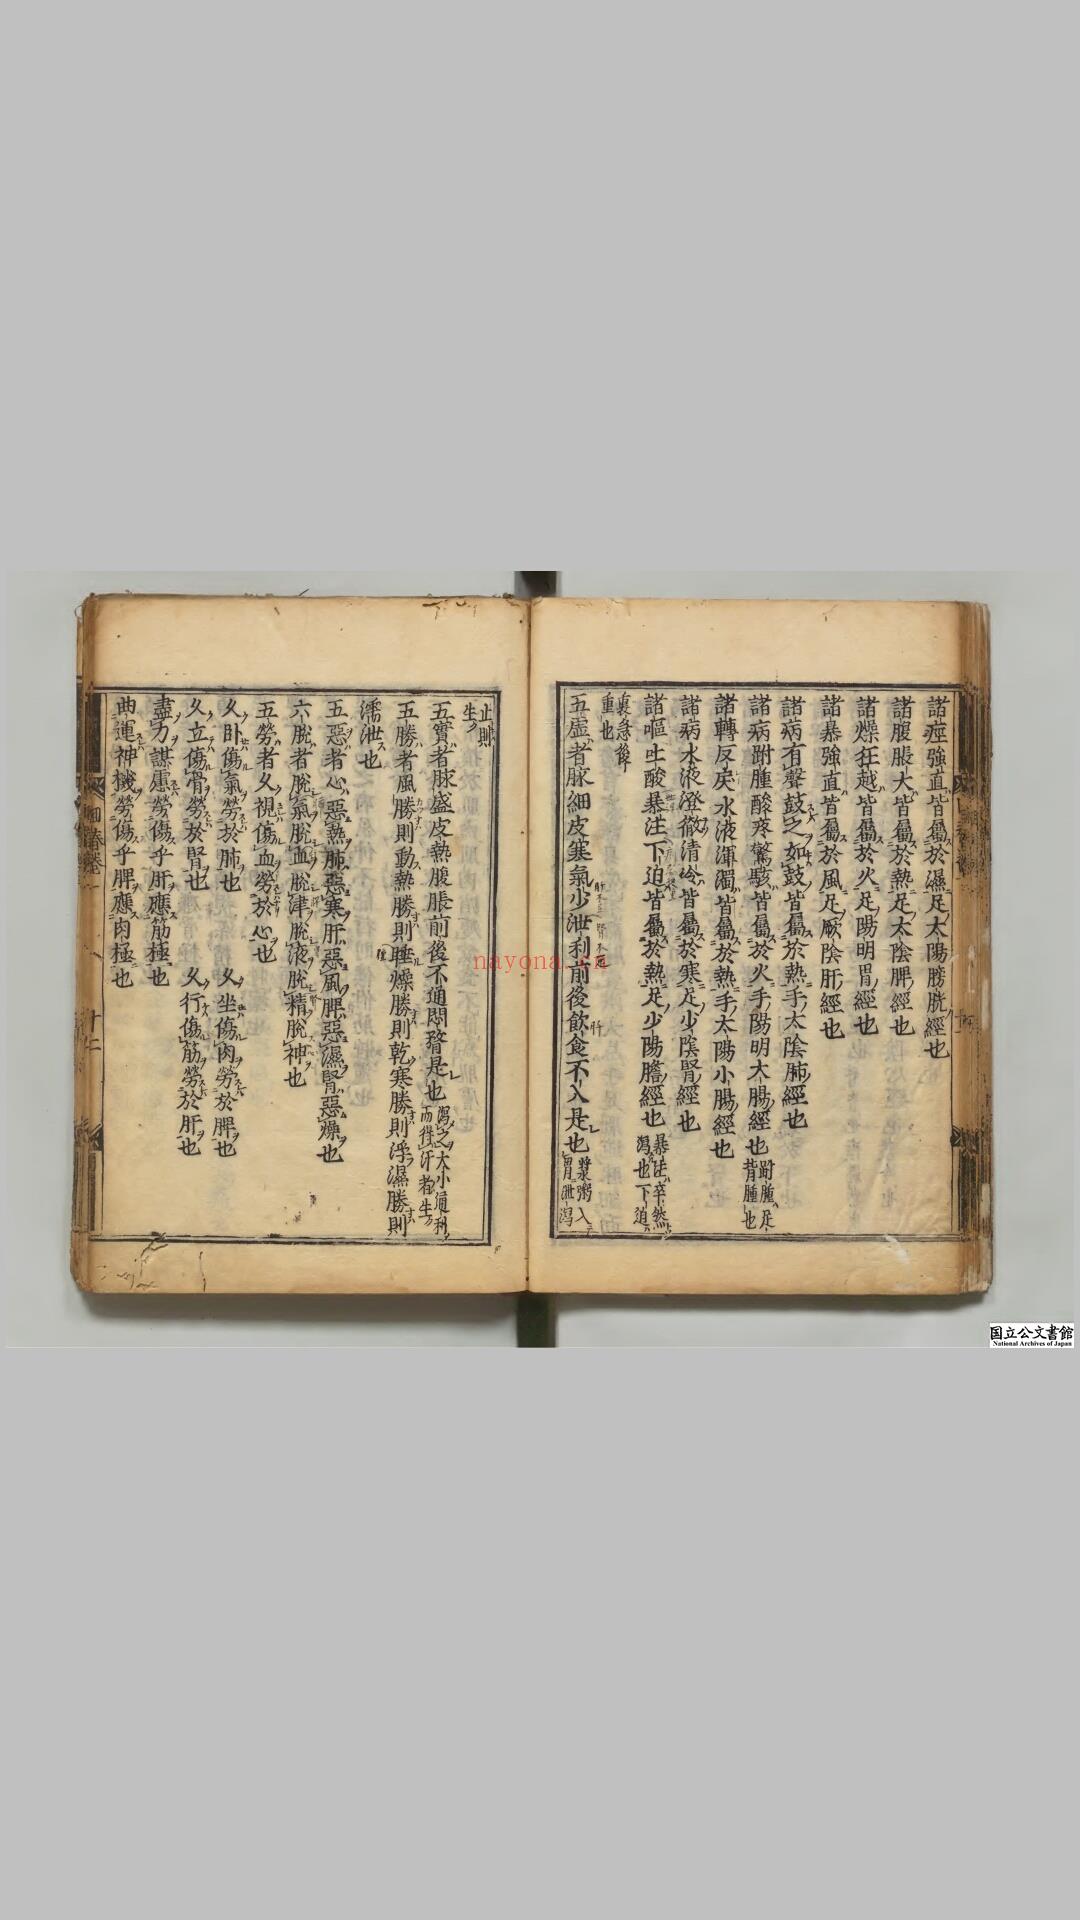 諸痙強直皆屬於濕足太陽膀胱經也
諸腹脹大皆屬於熱足太陰脾經也
諸燥狂越皆屬於火足陽明胃經也
諸暴強直皆屬於風足厥陰肝經也
諸病有聲鼓之如鼓皆屬於熱手太陰肺經也
諸病胕腫酸疼驚駭皆屬於火手陽明大腸經也
胕腫足
背腫也
諸轉反戾水液渾濁皆屬於熱手太陽小腸經也
諸病水液澄徹清冷皆屬於寒足少陰腎經也
諸嘔生酸暴注下迫皆屬於熱足少陽膽經也
暴注卒然
瀉也下迫
裏急後
重也
五虛者脉細皮寒氣少泄利前後飲食不入是也
漿粥入
胃泄瀉
止則
生
五實者脉盛皮熱腹脹前後不通悶瞀是也
瀉之大小通利
而後汗者生
五勝者風勝則動熱勝則腫燥勝則乾寒勝則浮濕勝則
濡泄也
五惡者心惡熱肺惡寒肝惡風脾惡濕腎惡燥也
六脫者脫氣脫血脫津脫液脫精脫神也
五勞者久視傷血勞於心也
久卧傷氣勞於肺也 久坐傷肉勞於脾也
久立傷骨勞於腎也 久行傷筋勞於肝也
盡力謀慮勞傷乎肝應筋極也
曲運神機勞傷乎脾應肉極也
回春卷一
十二
nayona.cn
国立公文書館
National Archives of Japan